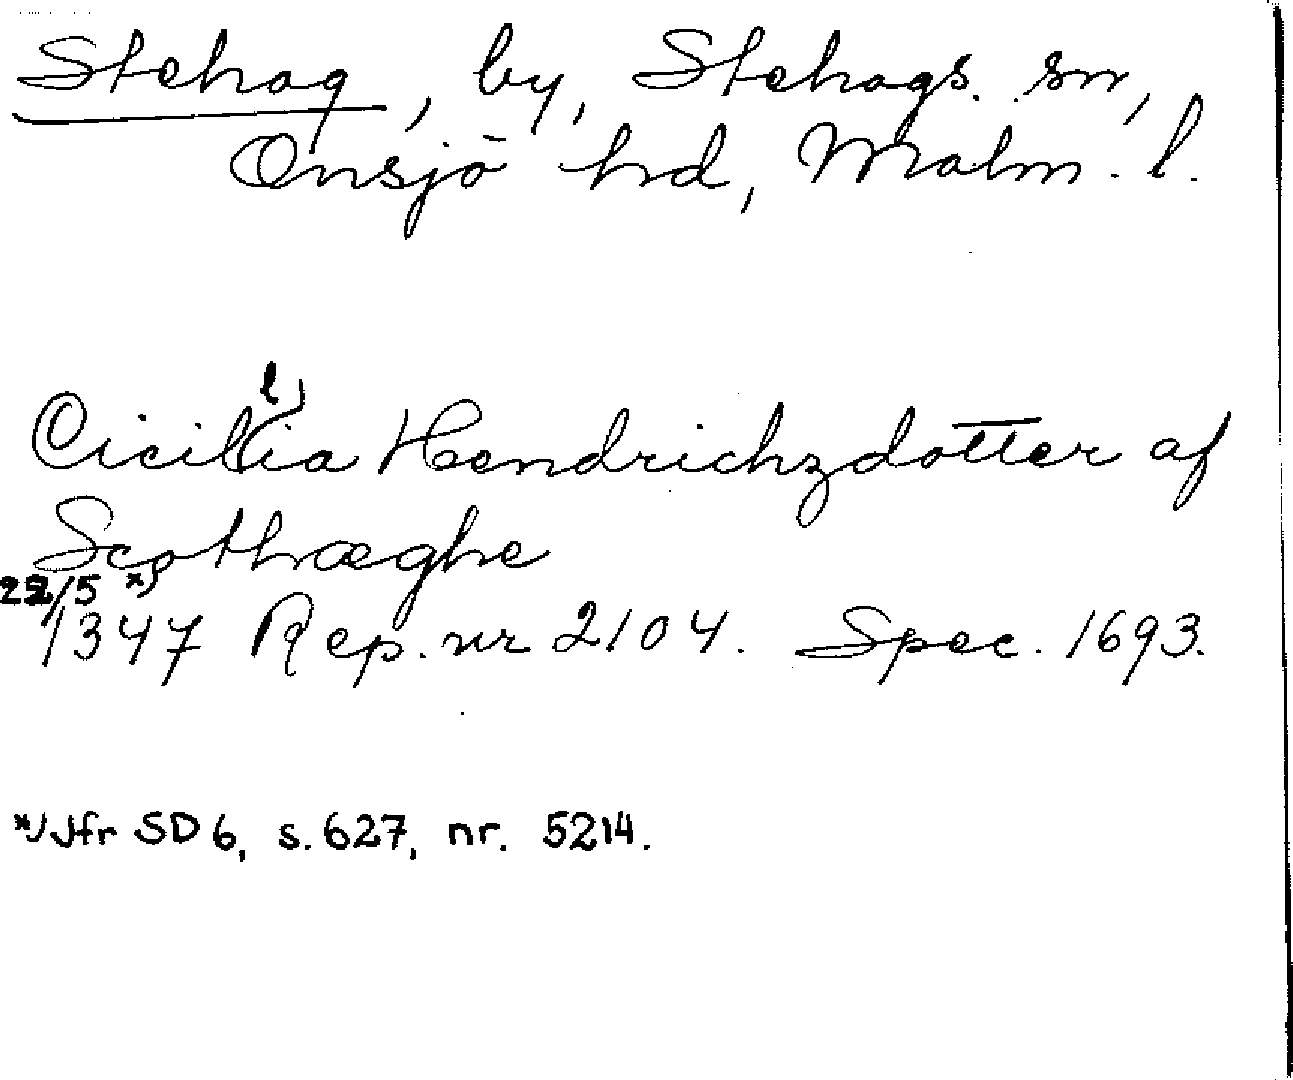 Stehag, by, Stehags. sn,
Onsjö hd, Malm. l.
l)
Cicilia Hendrichzdotter af
Scothæghe
22/5 *)
1347 Rep. nr 2104. Spec. 1693.
*) Jfr SD 6, s. 627, nr. 5214.